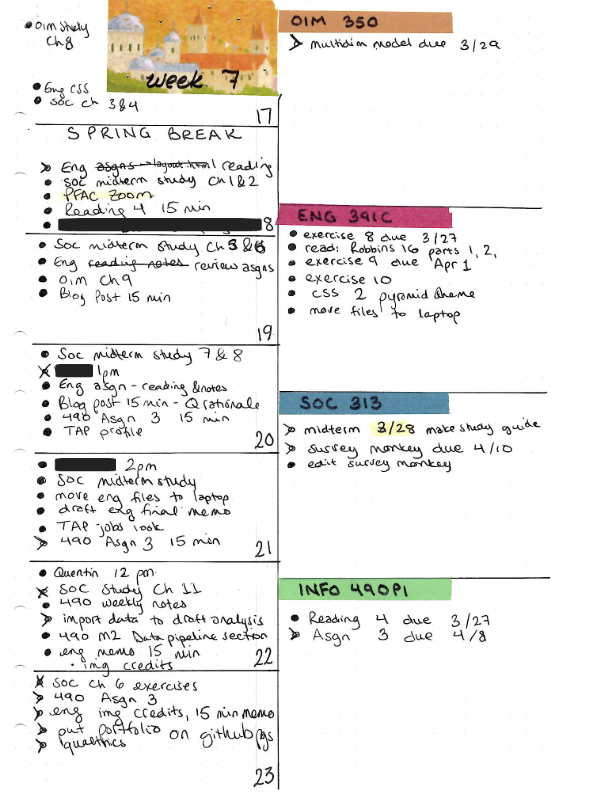 OIM Study
Ch 8
week 7
Eng CSS
SOC ch 3 & 4
17
SPRING BREAK
Eng asgns → layout.html reading
SOC midterm study Ch 1 & 2
PFAC Zoom
Reading 4 15 min
8
Soc midterm study Ch 5 & 6
Eng reading notes review asgns
OIM Ch 9
Blog Post 15 min
19
Soc midterm study 7 & 8
1pm
Eng asgn - reading & notes
Blog post - 15 min - Q rationale
490 Asgn 3 15 min
TAP profile
20
2pm
SOC midterm study
move eng files to laptop
draft eng final memo
TAP jobs look
490 Asgn 3 15 min
21
Quentin 12 pm
SOC Study Ch 11
490 weekly notes
import data to draft analysis
490 M2 Data pipeline section
eng memo 15 min
img credits
22
SOC ch 6 exercises
490 Asgn 3
eng img credits, 15 min memo
put portfolio on github pgs
23
OIM 350
multidim model due 3/29
ENG 391C
exercise 8 due 3/27
read: Robbins 16 parts 1, 2,
exercise 9 due Apr 1
exercise 10
CSS 2 pyramid theme
move files to laptop
SOC 313
midterm 3/28 make study guide
survey monkey due 4/10
edit survey monkey
INFO 490PI
Reading 4 due 3/27
Asgn 3 due 4/8